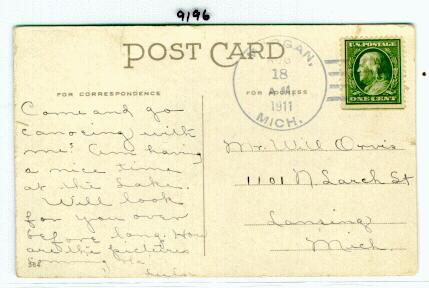 9196
POST CARD
FOR CORRESPONDENCE
FOR ADDRESS
AUG
18
A.M.
1911
MICH.
U.S. POSTAGE
ONE CENT
Come and go
canoeing with
me? Am having
a nice time
at the Lake.
Will look
for you over
before long. How
are the pictures
coming,
Mr. Will Orvis
1101 N. Larch St
Lansing
Mich.